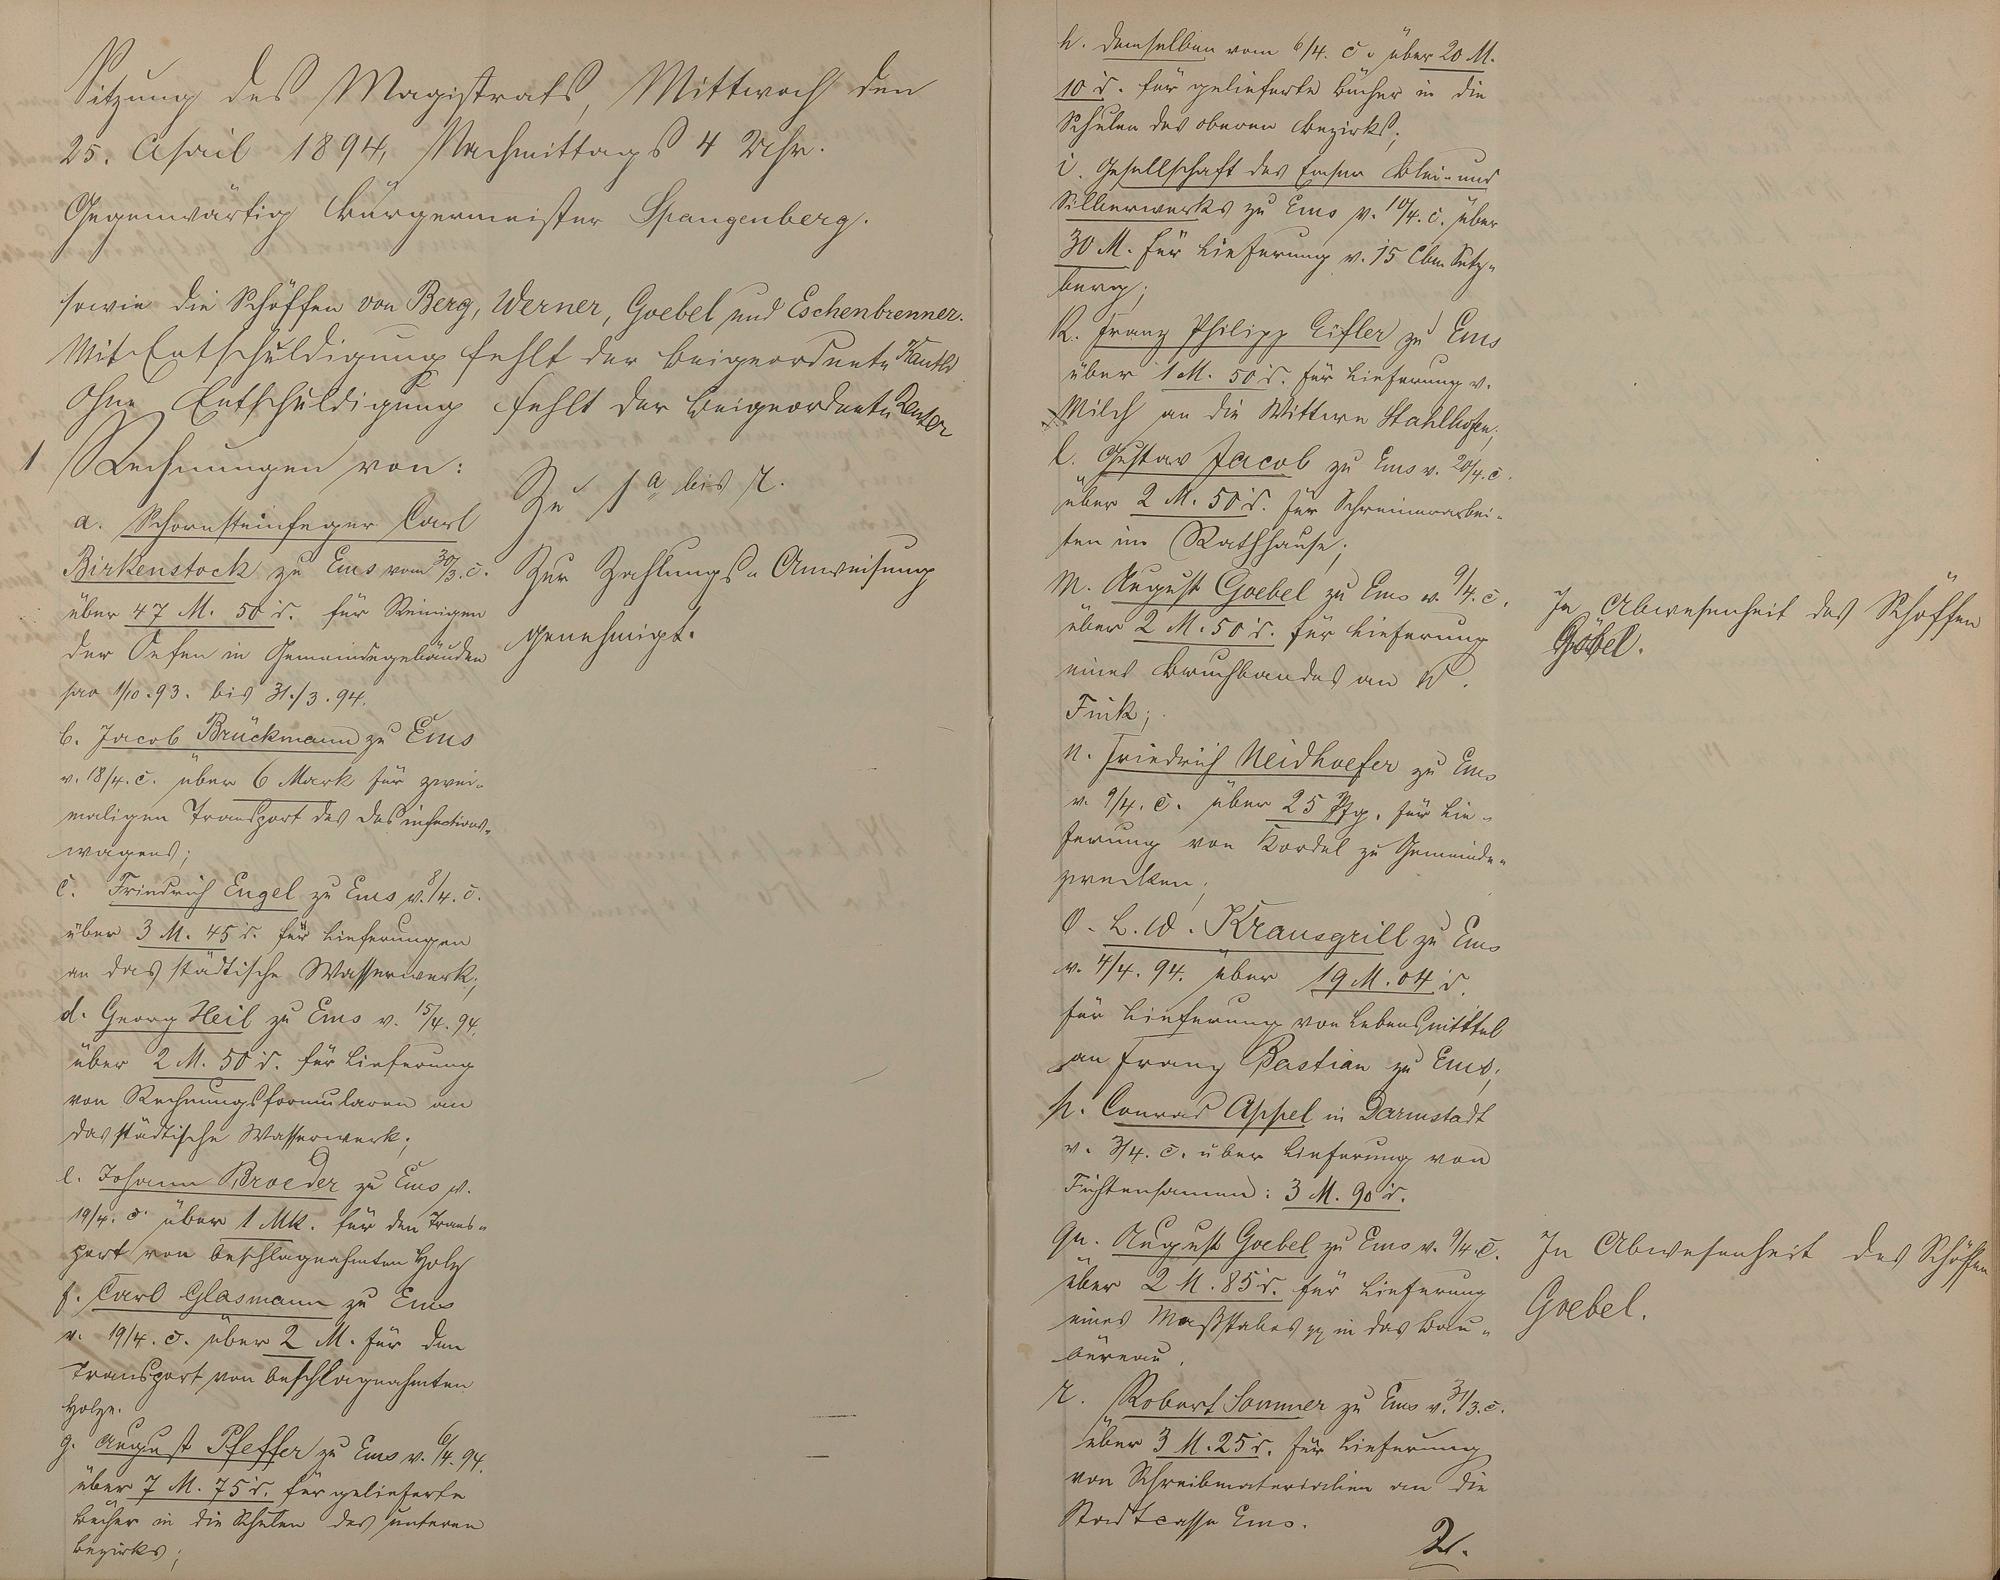 Sitzung des Magistrats, Mittwoch den
25. April 1894, Nachmittags 4 Uhr.
Gegenwärtig Bürgermeister Spangenberg.
sowie die Schöffen von Berg, Werner, Goebel und Eschenbrenner.
Mit Entschuldigung fehlt der Beigeordnete
Ohne Entschuldigung fehlt der Beigeordnete
1 Rechnungen von:
a. Schornsteinfeger Carl
Birkenstock zu Ems vom 30/3. c.
über 47 M. 50 d. für Reinigen
der Oefen in Gemeindegebäuden
pro 1/10.93. bis 31./3.94.
b. Jacob Brückmann zu Ems
v. 18/4. c. über 6 Mark für zwei-
maligen Transport des Desinfections-
wagens;
c. Friedrich Engel zu Ems v. 8/4. c.
über 3 M. 45 d. für Lieferungen
an das städtische Wasserwerk;
d. Georg Heil zu Ems v. 15/4. 94.
über 2 M. 50 d. für Lieferung
von Rechnungsformularen an
das städtische Wasserwerk;
e. Johann Broeder zu Ems v.
19/4. c. über 1 Mk. für den Trans-
port von beschlagnahmten Holz
f. Carl Glasmann zu Ems
v. 19/4. c. über 2 M. für den
Transport von beschlagnahmten
Holze.
g. August Pfeffer zu Ems v. 6/4. 94.
über 7 M. 75 d. für gelieferte
Bücher in die Schulen des unteren
Bezirks;
Zu 1 a bis r.
Zur Zahlungs-Anweisung
genehmigt.
h. demselben vom 6/4. c. über 20 M.
10 d. für gelieferte Bücher in die
Schulen des oberen Bezirks;
i. Gesellschaft des Emser Blei- und
Silberwerks zu Ems v. 10/4. c. über
30 M. für Lieferung v. 15 Cbm Setz-
berg;
k. Franz Philipp Eifler zu Ems
über 1 M. 50 d. für Lieferung v.
Milch an die Wittwe Stahlhofen;
l. Gustav Jacob zu Ems v. 20/4. c.
über 2 M. 50 d. für Schreinerarbei-
ten im Rathhause;
m. August Goebel zu Ems v. 9/4. c.
über 2 M. 50 d. für Lieferung
eines Bruchbandes an W.
Fink;
n. Friedrich Neidhoefer zu Ems
v. 9/4. c. über 25 Pfg. für Lie-
ferung von Kordel zu Gemeinde-
zwecken;
o. L. W. Krausgrill zu Ems
v. 4/4. 94. über 19 M. 04 d.
für Lieferung von Lebensmittel
an Franz Bastian zu Ems;
p. Conrad Appel in Darmstadt
v. 3/4. c. über Lieferung von
Fichtensamen: 3 M. 90 d.
qu. August Goebel zu Ems v. 9/4. c.
über 2 M. 85 d. für Lieferung
eines Maßstabes pp in das Bau-
büreau.
r. Robert Sommer zu Ems v. 31/3. c.
über 3 M. 25 d. für Lieferung
von Schreibmaterialien an die
Stadtcasse Ems.
In Abwesenheit des Schöffen
Göbel.
In Abwesenheit des Schöffen
Goebel.
2.